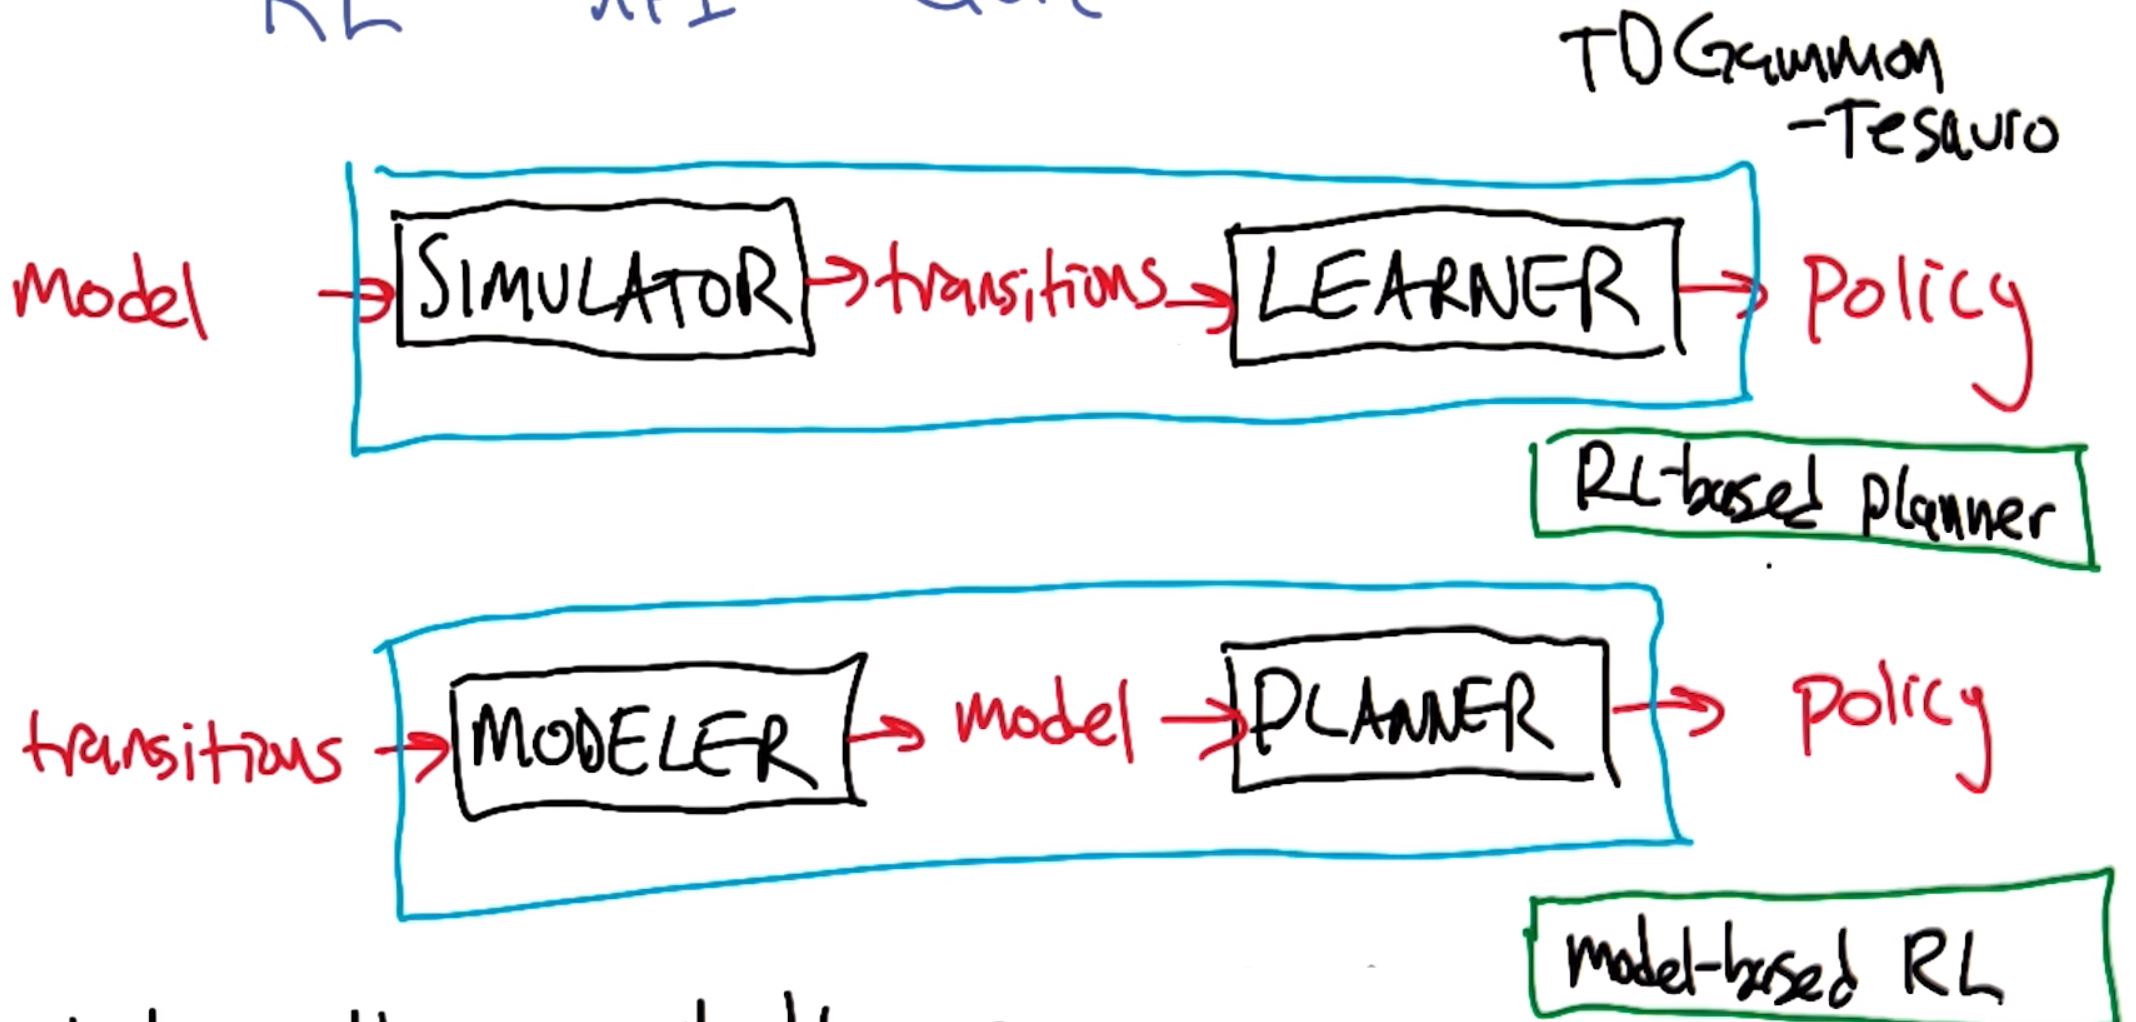 RL API
TD Gammon
-Tesauro
model → SIMULATOR → transitions → LEARNER → policy
RL-based planner
transitions → MODELER → model → PLANNER → policy
model-based RL